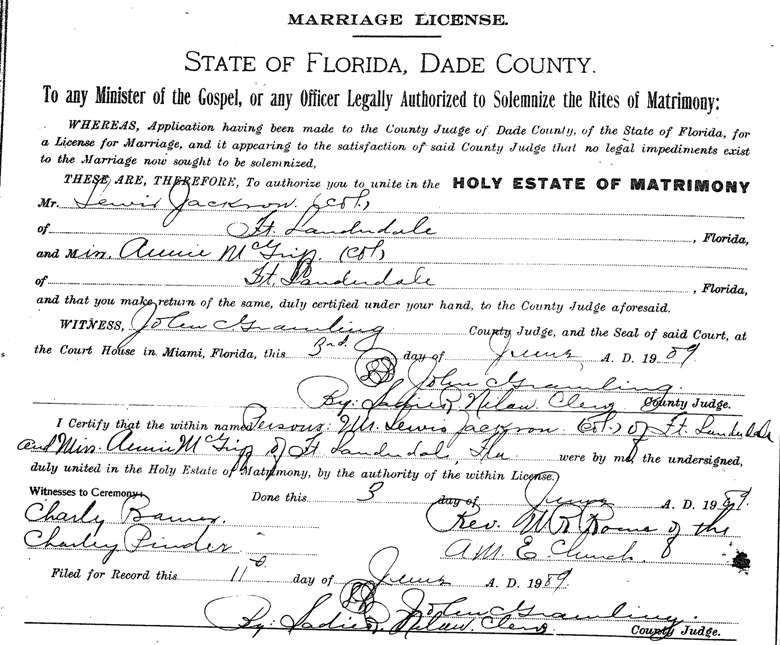 MARRIAGE LICENSE.
STATE OF FLORIDA, DADE COUNTY.
To any Minister of the Gospel, or any Officer Legally Authorized to Solemnize the Rites of Matrimony:
WHEREAS, Application having been made to the County Judge of Dade County, of the State of Florida, for
a License for Marriage, and it appearing to the satisfaction of said County Judge that no legal impediments exist
to the Marriage now sought to be solemnized,
THESE ARE, THEREFORE, To authorize you to unite in the HOLY ESTATE OF MATRIMONY
Mr. Lewis Jackson. (Col,)
of Ft. Lauderdale, Florida,
and Miss. Annie McGriff. (Col,)
of Ft. Lauderdale, Florida,
and that you make return of the same, duly certified under your hand, to the County Judge aforesaid.
WITNESS, John Gramling County Judge, and the Seal of said Court, at
the Court House in Miami, Florida, this 3rd. day of A. D. 19
John Gramling.
By: Clerk County Judge.
I Certify that the within named Persons: Mr. Lewis Jackson. (Col,) of Ft. Lauderdale
and Miss. Annie McGriff of Ft Lauderdale, Fla were by me, the undersigned,
duly united in the Holy Estate of Matrimony, by the authority of the within License.
Witnesses to Ceremony: Done this 3 day of A. D. 19
Charly Rev. of the
Charley Pinder A.M.E. Church.
Filed for Record this 11 day of A. D. 19
John Gramling.
By: Sadie R. Clerk County Judge.